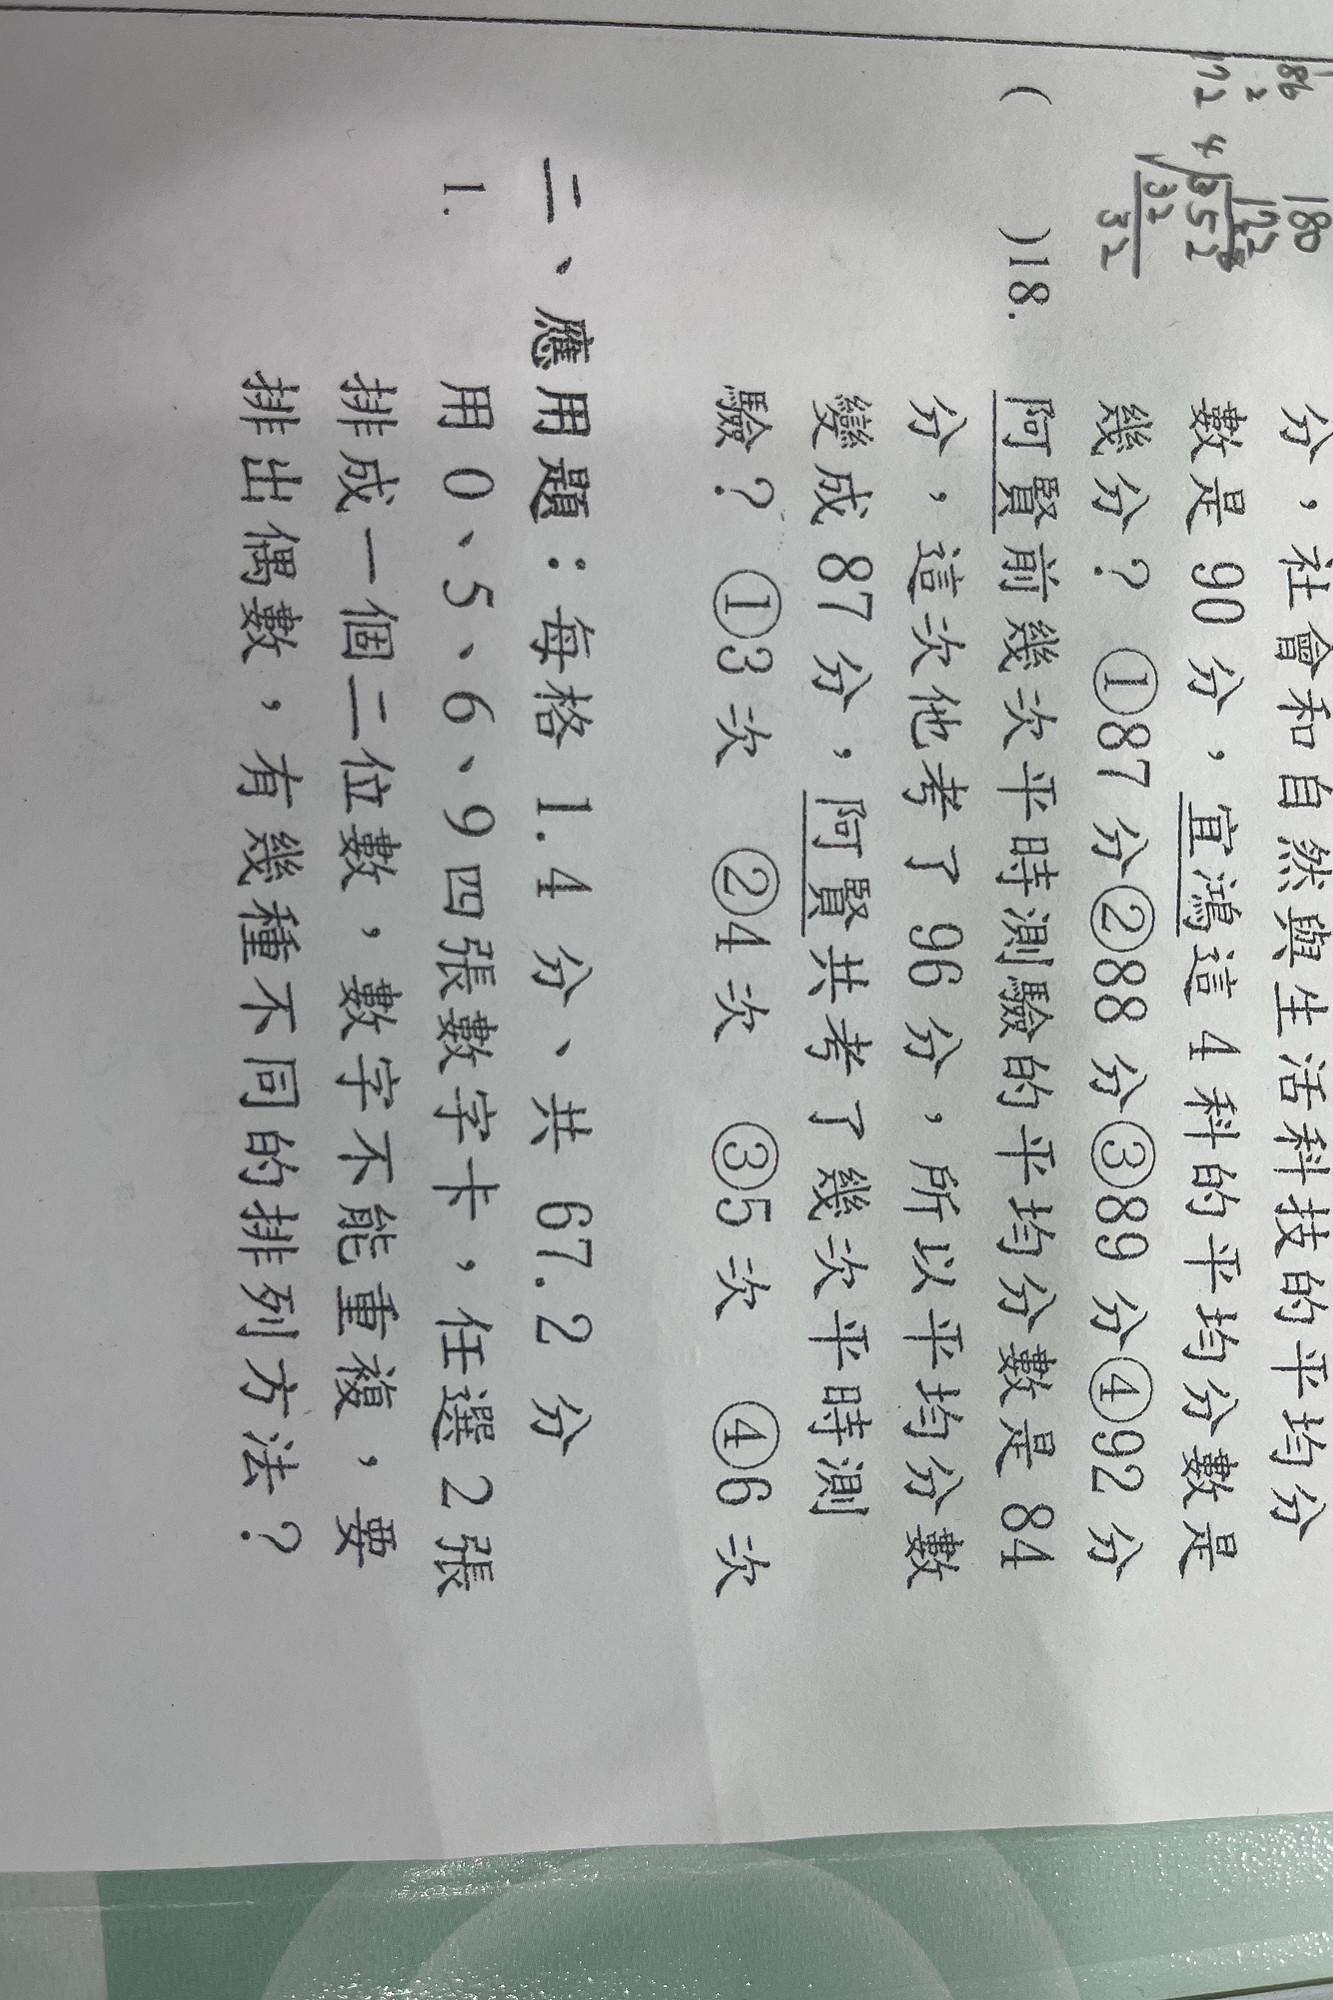 186
2
172
180
172
4 352
32
32
分，社會和自然與生活科技的平均分
數是 90 分，宜鴻這 4 科的平均分數是
幾分？ ①87 分②88 分③89 分④92 分
( )18. 阿賢前幾次平時測驗的平均分數是 84
分，這次他考了 96 分，所以平均分數
變成 87 分，阿賢共考了幾次平時測
驗？ ①3 次 ②4 次 ③5 次 ④6 次
二、應用題：每格 1.4 分、共 67.2 分
1. 用 0、5、6、9 四張數字卡，任選 2 張
排成一個二位數，數字不能重複，要
排出偶數，有幾種不同的排列方法？